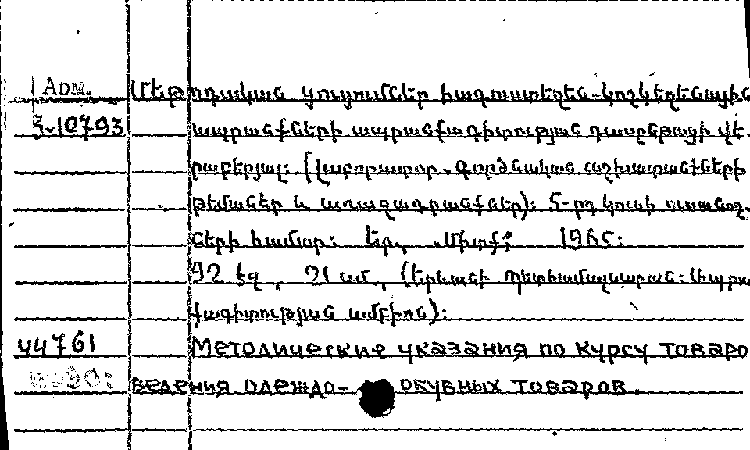 Арм. Մեթոդական ցուցումներ հագուստեղեն-կոշկեղենային
3-10793 ապրանքների ապրանքագիտության դասընթացի վե-
րաբերյալ: (Լաբորատոր-գործնական աշխատանքների
թեմաներ և առաջադրանքներ): 5-րդ կուրսի ուսանող-
ների համար: Եր., 1965:
92 էջ, 21 սմ., (Երևանի պետհամալսարան:
քագիտության ամբիոն):
44761 Методические указания по курсу товаро
ведения одеждо- обувных товаров.